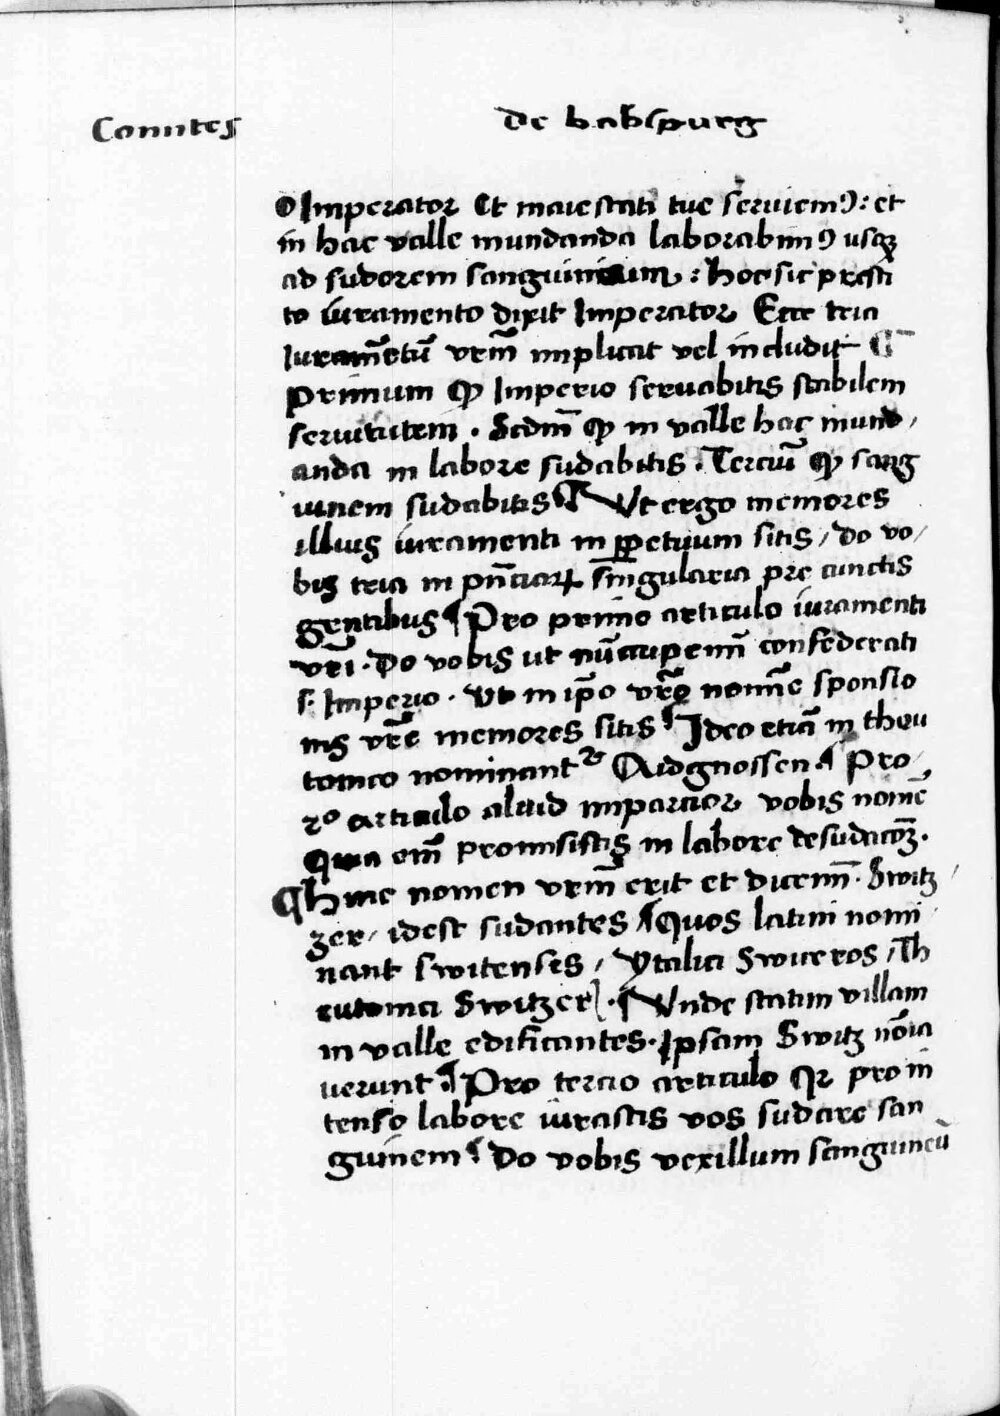 Comites de habspurg
O Imperator Et maiestati tue seruiemꝰ: et
in hac valle mundanda laborabimꝰ usqꝫ
ad sudorem sanguineum : hoc sic presti
to iuramento dixit Imperator Ecce tria
Iuramētū vr̄m implicat vel includit ¶
Primum ꝙ Imperio seruabitis stabilem
seruitutem . Scdm̄ ꝙ in valle hac mund /
anda in labore sudabitis . Terciū ꝙ sang
uinem sudabitis ¶ Ut ergo memores
illius iuramenti in ꝑpetuum sitis / do vo /
bis tria in singularia pre cunctis
gentibus ¶ Pro primo articulo iuramenti
vr̄i . Do vobis ut nūcupem̄ confederati
s. Imperio . Ut in ip̄o vr̄o nom̄e sponsio
nis vr̄e memores sitis ¶ Ideo etiā in theu
tonico nominantᷣ Aidgnossen ¶ Pro
2º articulo aliud imparcior vobis nomē
Quia em̄ promisistis in labore desudacoꝫ̄ .
¶ Hinc nomen vr̄m erit et dicem̄ . Switz /
zer / idest sudantes ¶ Quos latini nomi
nant switenses / Ytalici Swiceros / Th
eutonici Switzer ] . ¶ Unde statim villam
in valle edificantes . Ipsam Switz nōīa
uerunt ¶ Pro tercio articulo qꝛ pro in
tenso labore iurastis vos sudare san
guinem ¶ Do vobis vexillum sanguineū